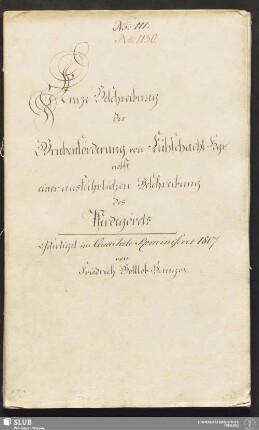 No: 111.
No 1130.
Kurze Beschreibung
der
Grubenförderung von Kühschacht Fgr.
nebst
einer ausführlichen Beschreibung
des
Pferdegöpels
gefertigt im Quartale Reminiscere 1807
von
Friedrich Gottlob
SLUB